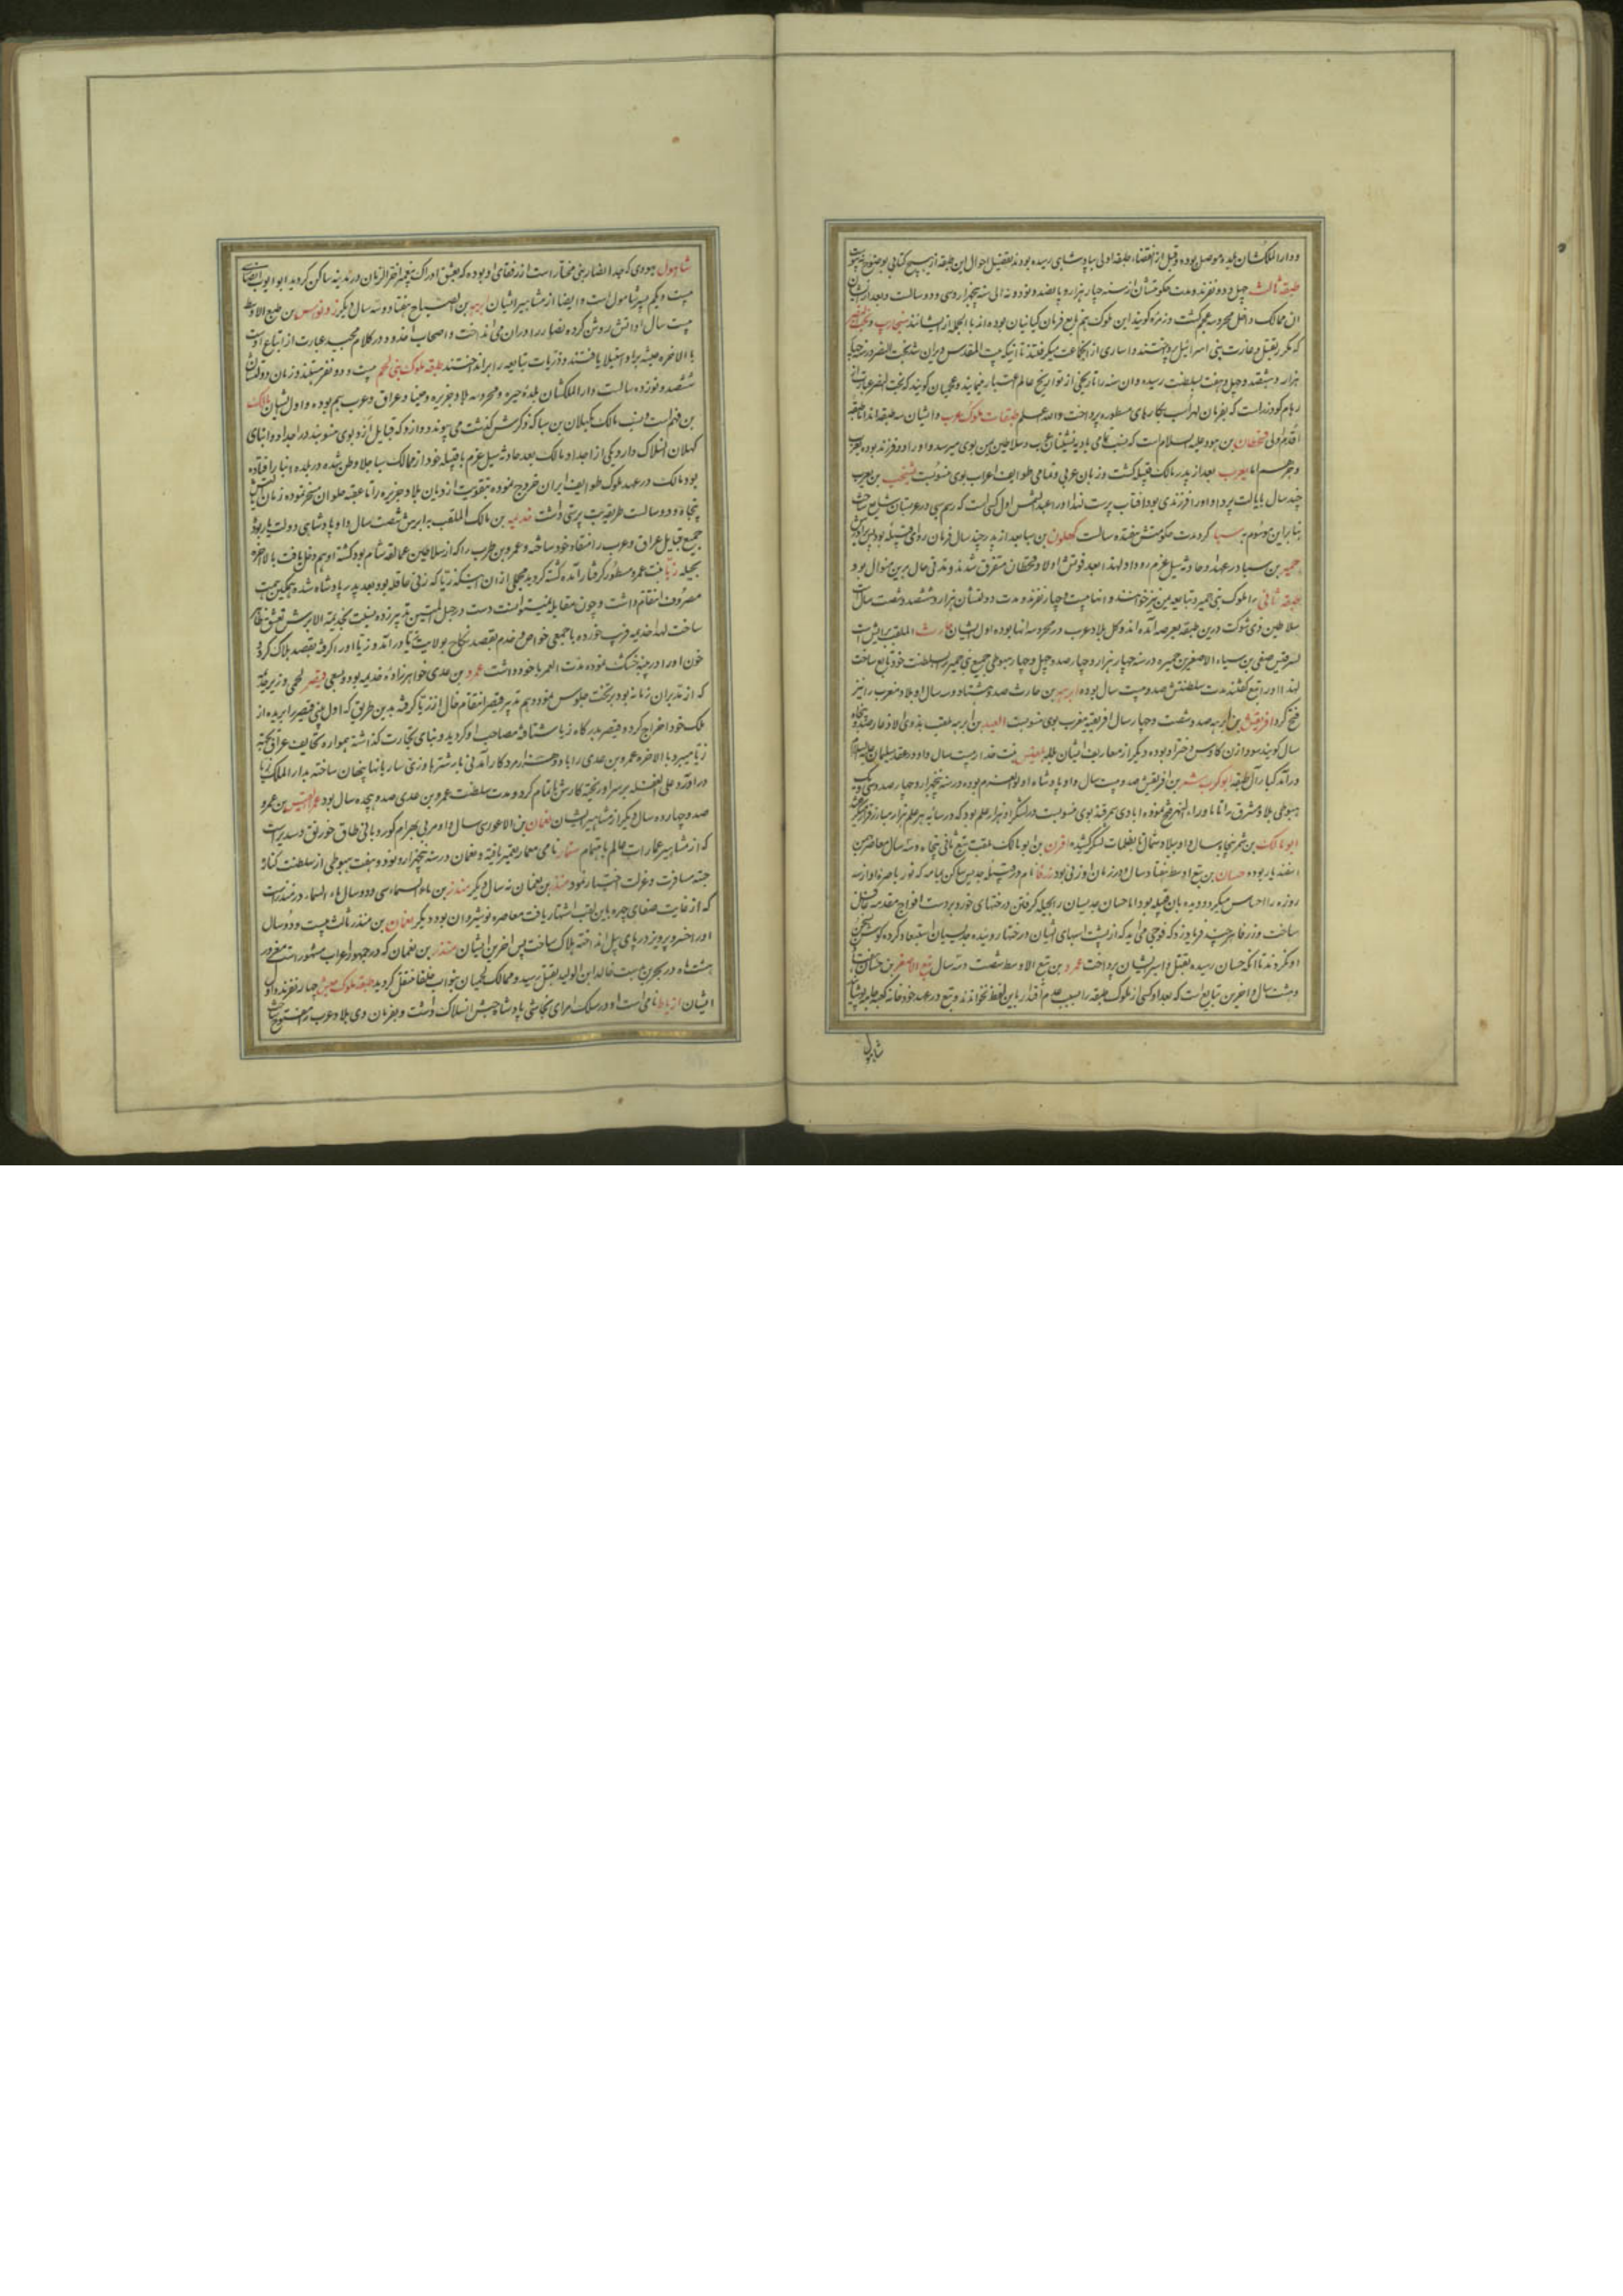 ودار الملکشان بلده موصل بوده و قبل از انقضاء طبقه اولی بپادشاهی رسیده بودند تفصیل احوال این طبقه از هیچ کتابی بوضوح
طبقه ثالث چهل و دو نفرند و مدت حکومتشان از سنه چهار هزار و پانصد و نود و نه الی سنه پنجهزار و سی و دو سالست و بعد از
ان ممالک داخل محروسه عجم کشت و زمره کویند این ملوک هم تابع فرمان کیانیان بوده اند بالجمله از ایشانند سنجاریب و بخت نصر
که مکرر بقتل و غارت بنی اسرائیل پرداختند و اساری از انجماعت میکرفتند تا انیکه بیت المقدس ویران شد بخت النصر در سنه چهار
هزار و هشتصد و چهل و هفت بسلطنت رسیده وان سنه را تاریخی از تواریخ عالم اعتبار مینمایند و عجمیان کویند که بخت النصر عبارت از
رهام کودرز است که بفرمان لهراسب بکارهای مسطوره پرداخت والله اعلم طبقات ملوک عرب و ایشان سه طبقه اند اما طبقه
اقدم اولی قحطان بن هود علیه السلام است که نسب تمامی بادیه نشینان عرب و سلاطین یمن بوی میرسد و او را دو فرزند بوده یعرب
و جرهم اما یعرب بعد از پدر مالک قبیله کشت و زبان عربی و تمامی طوایف اعراب بوی منسوبست یشجب بن یعرب
چند سال بایالت پرداخت و او را فرزندی بود افتاب پرست لهذا او را عبد الشمس اول کسی است که رسم سبی در عربستان شایع ساخت
بنابراین موسوم به سبا کردید مدت حکومتش هفده سالست کهلان بن سبا بعد از پدر چند سال فرمان روای قبیله بود
حمیر بن سبا در عهد او حادثه سیل عرم رو داد لهذا بعد فوتش اولاد قحطان متفرق شدند و مدتی حال برین منوال بود
طبقه ثانی را ملوک بنی حمیر و تبابعه یمن نیز خوانند و انها بیست و چهار نفرند و مدت دولتشان هزار و ششصد و شصت سال
سلاطین ذی شوکت درین طبقه بعرصه آمده اند و کل بلاد عرب در محروسه انها بوده اول ایشان حارث الملقب برایش است
بن صیفی بن سبا الاصغر بن حمیر در سنه چهار هزار و چهار صد و چهل و چهار هبوطی جمیع بنی حمیر بسلطنت خود تابع ساخت
لهذا او را تبع کفتند مدت سلطنتش صد و بیست سال بوده ابرهه بن حارث صد و هشتاد و سه سال او بلاد مغرب را نیز
فتح کرد افریقش بن ابرهه صد و شصت و چهار سال افریقیه مغرب بوی منسوبست العبد بن ابرهه ملقب بذوی الاذعار
سال کویند سودابه زن کاوس دختر او بوده و دیگر از معاریف ایشان ملکه بلقیس بنت هداد بیست سال او در عقد سلیمان علیه السلام
درآمد کبار آل طبقه ابو کرب شمر بن افریقش صد و بیست سال و او پادشاه اولوالعزم بوده در سنه پنجهزار و چهار صد و سی و یک
هبوطی بلاد مشرق را تا ماوراء النهر فتح نموده ابادی سمرقند بوی منسوبست در لشکر او هزار علم بود که در سایه هر علم هزار مبارز قرار میگرفت
ابو مالک بن شمر پنجاه سال او ببلاد شمال تا بظلمات لشکر کشیده اقرن بن ابو مالک ملقب بتبع ثانی پنجاه و سه سال معاصر بهمن
اسفندیار بوده حسان بن تبع اوسط هفتاد سال در زمان او زنی بود زرقا نام در قبیله جدیس ساکن یمامه که نور باصره او از سه
روزه راه احساس میکرد و دیده بان قبیله بود اما حسان جدیسیان را بحیله کرفتن درختهای خورد بر دست افواج مقدمه غافل
ساخت و زرقا هر چند فریاد زد که فوجی می آید که از پشت اسبهای ایشان درختها روئیده جدیسیان استبعاد کرده گوش بسخن
او نکردند تا انکه حسان رسیده بقتل و اسر ایشان پرداخت عمرو بن تبع الاوسط شصت و سه سال تبع الاصغر بن حسان
و بیست سال و اخرین تبابع است که بعد او کسی از ملوک طبقه را بسبب عدم اقتدار باین لفظ نخوانند و تبع در عهد خود خانه کعبه جامه پوشانید
شامول
شامول یهودی که جد انصار بنی مختار است از رفقای او بوده که بعشق ادراک پیغمبر آخر الزمان در مدینه ساکن کردید ابو ایوب انصاری
بیست و یکم پسر شامول است و ایضا از مشاهیر ایشان ابرهه بن الصباح هفتاد و سه سال و دیگر ذو نواس بن تبع الاوسط
بیست سال او اتش روشن کرده نصاری را در ان می انداخت و اصحاب اخدود در کلام مجید عبارت از اتباع اوست
بالاخره حبشه بر او استیلا یافتند و ذریات تبابعه را برانداختند طبقه ملوک بنی لخم بیست و دو نفر هستند و زمان دولتشان
ششصد و نوزده سالست دار الملکشان بلده حیره و محروسه بلاد جزیره و حینا و عراق و عرب هم بوده و اول ایشان مالک
بن فهم است و نسب مالک بکهلان بن سبا که ذکرش کذشت می پیوندد و ازد که قبایل ازد بوی منسوبند در اجداد و ابنای
کهلان انسلاک دارد یکی از اجداد مالک بعد حادثه سیل عرم با قبیله خود از ممالک سبا جلا وطن شده در بلده انبار افتاده
بود مالک در عهد ملوک طوایف ایران خروج نموده بتقویت ازدیان بلاد جزیره را تا عقبه حلوان مسخر نموده زمان
پنجاه و دو سالست طریقه بت پرستی داشت جذیمه بن مالک الملقب به ابرش شصت سال و او پادشاهی دولتیار بوده
جمیع قبایل عراق و عرب را منقاد خود ساخته و عمرو بن ظرب را که از سلاطین عمالقه شام بود کشته او هم دخل یافت بالاخره
بحیله زبا بنت عمرو مسطور کرفتار آمده کشته کردید مجملی از ان اینکه زبا که زنی عاقله بود بعد پدر پادشاه شده همکین همت
مصروف انتقام داشت و چون مقابله نمیتوانست دست در حبل المتین تدبیر زده بنسبت بجذیمه الابرش تعشق ظاهر
ساخت لهذا جذیمه فریب خورده با جمعی خواص و خدم بقصد نکاح بولایت زبا درآمد و زبا او را کرفته بقصد هلاک کرد و
خون او را در پنبه خشک نموده مدت العمر با خود داشت عمرو بن عدی خواهرزاده جذیمه بود و بسعی قیصر لخمی وزیر جذیمه
که از مدبران زمانه بود بر تخت جلوس نموده و هم بتدبیر قیصر انتقام خال از زبا کرفته بدین طریق که اول بینی قیصر را بریده از
ملک خود اخراج کرد و قیصر بدرکاه زبا شتافته مصاحب او کردید و بنای تجارت کذاشته همواره تحایف عراق بجهة
زبا میبرد بالاخره عمرو بن عدی را با دو هزار مرد کار آمدنی بار شترها و زی ساربانها پنهان ساخته بدار الملک زبا
درآورد و علی الغفله بر سر او ریخته کارش باتمام کرد و مدت سلطنت عمرو بن عدی صد و هیجده سال بود امرء القیس بن عمرو
صد و چهارده سال و دیگر از مشاهیر ایشان نعمان بن الاعور سی سال او مربی بهرام کور و بانی طاق خورنق و سدیر است
که از مشاهیر عمارات عالم باهتمام سنمار نامی معمار تعمیر یافته و نعمان در سنه پنجهزار و نود و هفت هبوطی از سلطنت کناره
جسته مسافرت و عزلت اختیار نمود منذر بن نعمان نه سال و دیگر منذر بن ماء السماء سی و دو سال ماء السماء مادر منذر است
که از غایت صفای چهره باین لقب اشتهار یافت معاصر نوشیروان بود و دیگر نعمان بن منذر ثالث بیست و دو سال
او را خسرو پرویز در پای پیل انداخته هلاک ساخت پس اخرین ایشان منذر بن نعمان که در جمهور اعراب مشهور است بمغرور
هشت ماه در بحرین بدست خالد ابن الولید بقتل رسید و ممالک لخمیان بنواب خلفا منتقل کردید طبقه ملوک حبش چهار نفرند و اول
ایشان ارباط نامی است او در سلک امرای نجاشی پادشاه حبش انسلاک داشت و بفرمان وی بلاد عرب را مفتوح ساخت